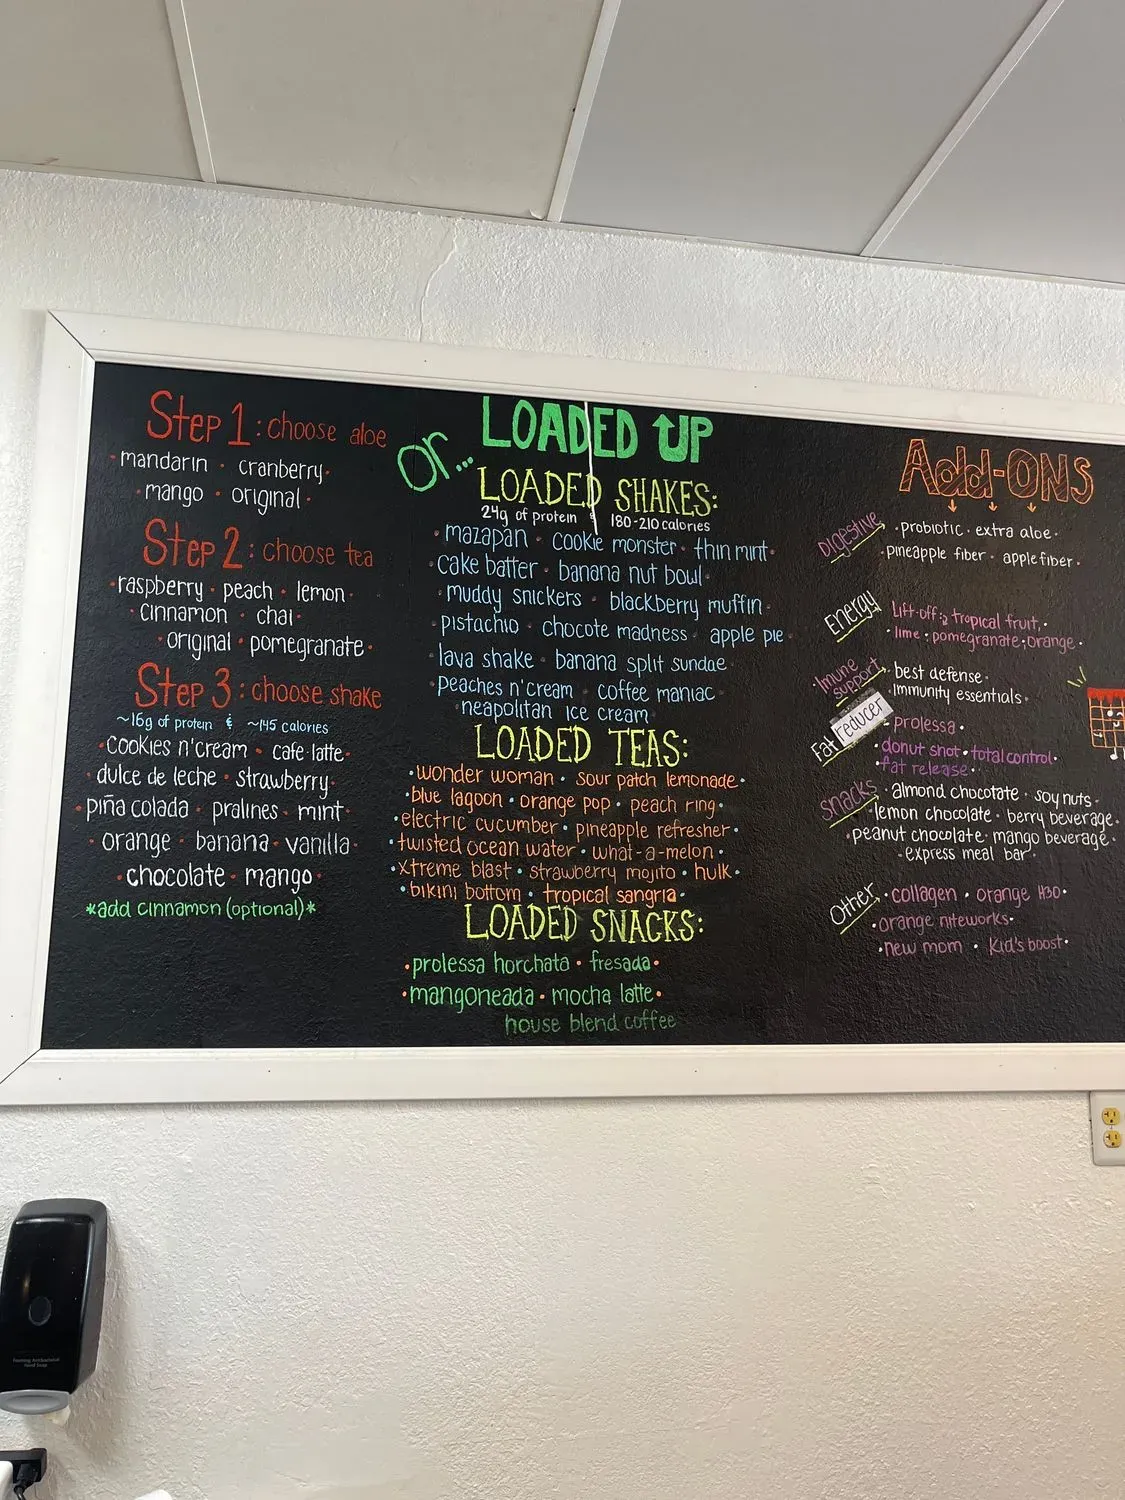 Step 1: choose aloe
• mandarin • cranberry •
• mango • original •
Step 2: choose tea
• raspberry • peach • lemon •
• cinnamon • chai •
• original • pomegranate •
Step 3: choose shake
~16g of protein & ~145 calories
• cookies n'cream • cafe latte •
• dulce de leche • strawberry •
• piña colada • pralines • mint •
• orange • banana • vanilla •
• chocolate • mango •
*add cinnamon (optional)*
Or...
LOADED UP
LOADED SHAKES:
24g of protein & 180-210 calories
• mazapan • cookie monster • thin mint •
• cake batter • banana nut bowl •
• muddy snickers • blackberry muffin •
• pistachio • chocote madness • apple pie •
• lava shake • banana split sundae •
• peaches n'cream • coffee maniac •
• neapolitan ice cream •
LOADED TEAS:
• wonder woman • sour patch lemonade •
• blue lagoon • orange pop • peach ring •
• electric cucumber • pineapple refresher •
• twisted ocean water • what-a-melon •
• xtreme blast • strawberry mojito • hulk •
• bikini bottom • tropical sangria •
LOADED SNACKS:
• prolessa horchata • fresada •
• mangoneada • mocha latte •
house blend coffee
Add-ONS
Digestive
• probiotic • extra aloe •
• pineapple fiber • apple fiber •
Energy
Lift-off: tropical fruit,
• lime • pomegranate • orange •
Imune support
• best defense •
• immunity essentials •
Fat reducer
• prolessa •
• donut shot • total control •
• fat release •
snacks
• almond chocotate • soy nuts •
• lemon chocolate • berry beverage •
• peanut chocolate • mango beverage •
• express meal bar •
Other
• collagen • orange H3O •
• orange niteworks •
• new mom • Kid's boost •
Foaming Antibacterial
Hand Soap